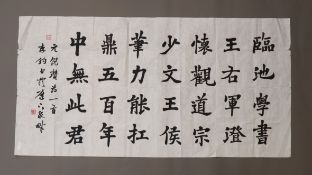 臨池學書
王右軍澄
懷觀道宗
少文王侯
筆力能扛
鼎五百年
中無此君
元倪瓚詩一首